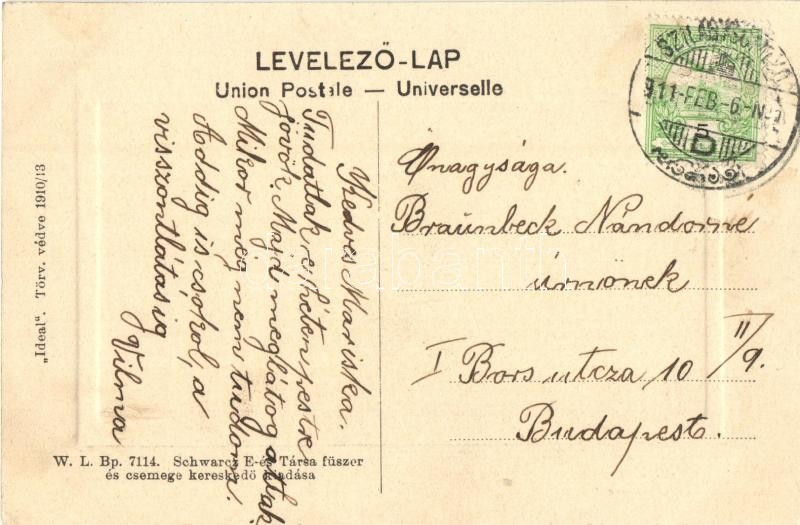 LEVELEZŐ-LAP
Union Postale — Universelle
911-FEB.-6-N.
Kedves Mariska.
Tudatlak, e héten pestre
jövök, Majd meglátogatlak.
Mikor még nem tudom.
Addig is csókol, a
visszontlátásig
Vilma
Őnagysága.
Braunbeck Nándorné
úrnőnek
I Bors utcza 10 II/9.
Budapest.
„Ideal“. Törv. védve 1910/13
W. L. Bp. 7114. Schwarcz E-és Társa fűszer
és csemege kereskedő kiadása